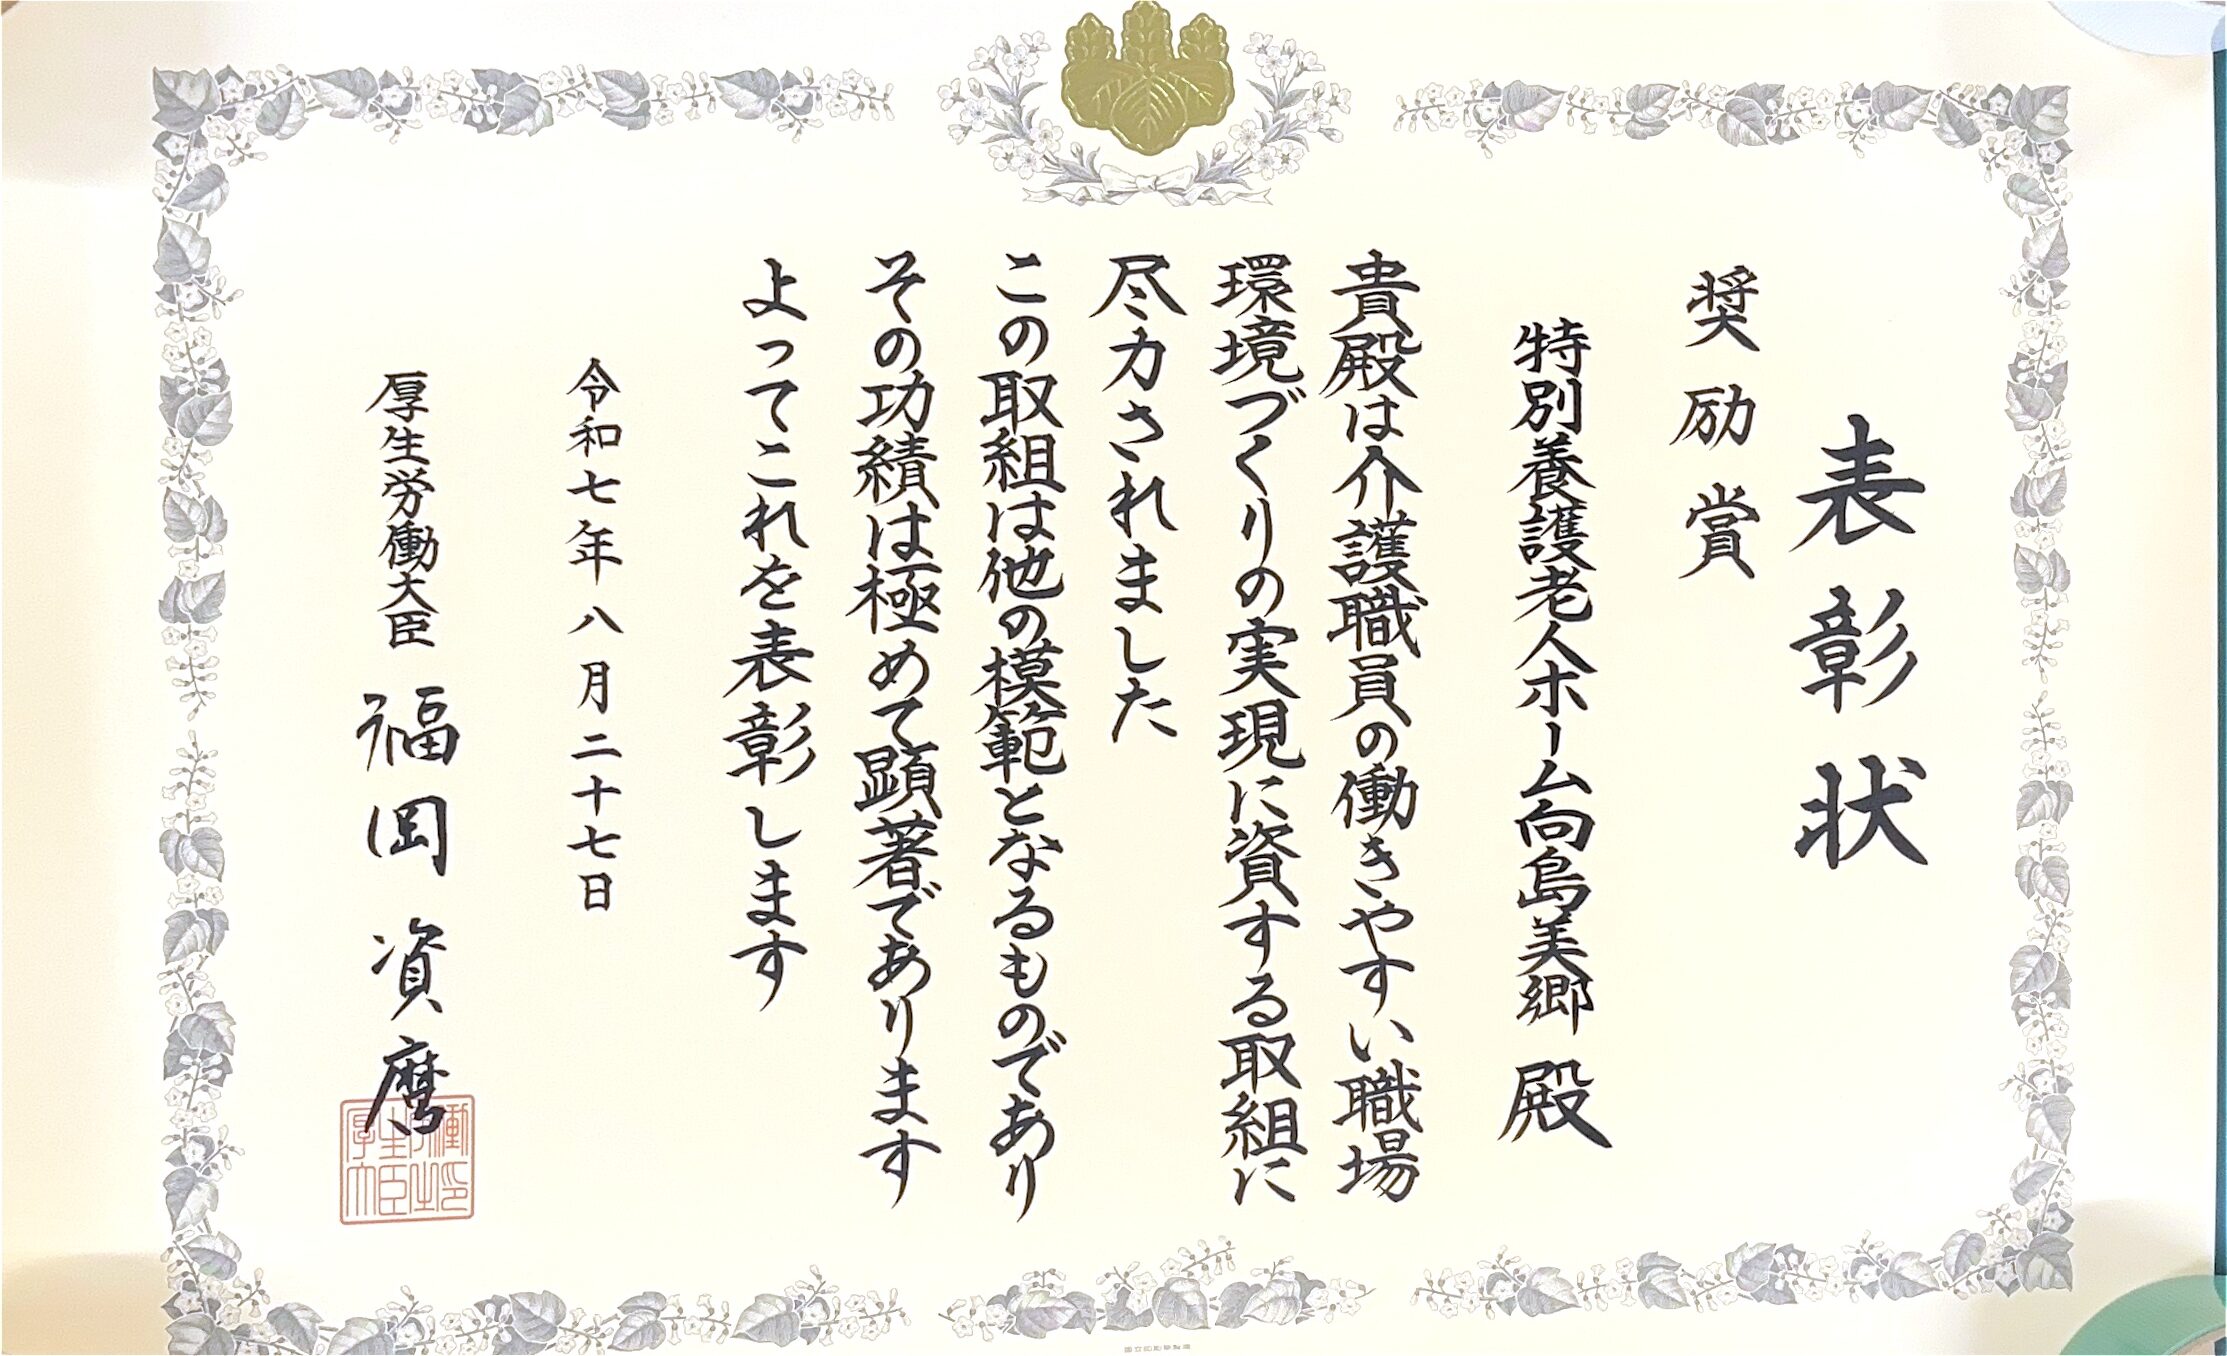 表彰状
奨励賞
特別養護老人ホーム向島美郷 殿
貴殿は介護職員の働きやすい職場
環境づくりの実現に資する取組に
尽力されました
この取組は他の模範となるものであり
その功績は極めて顕著であります
よってこれを表彰します
令和七年八月二十七日
厚生労働大臣 福岡資麿